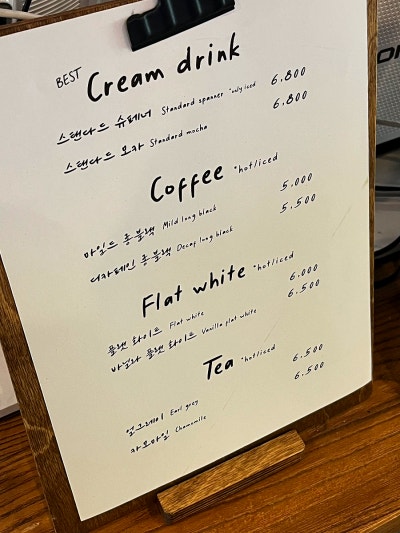 BEST Cream drink
스탠다드 슈페너 Standard spanner *only iced 6,800
스탠다드 모카 Standard mocha 6,800
Coffee *hot/iced
마일드 롱블랙 Mild long black 5.000
디카페인 롱블랙 Decaf long black 5,500
Flat white *hot/iced
플랫 화이트 Flat white 6.000
바닐라 플랫 화이트 Vanilla flat white 6.500
Tea *hot/iced
얼그레이 Earl grey 6.500
카모마일 Chamomile 6.500